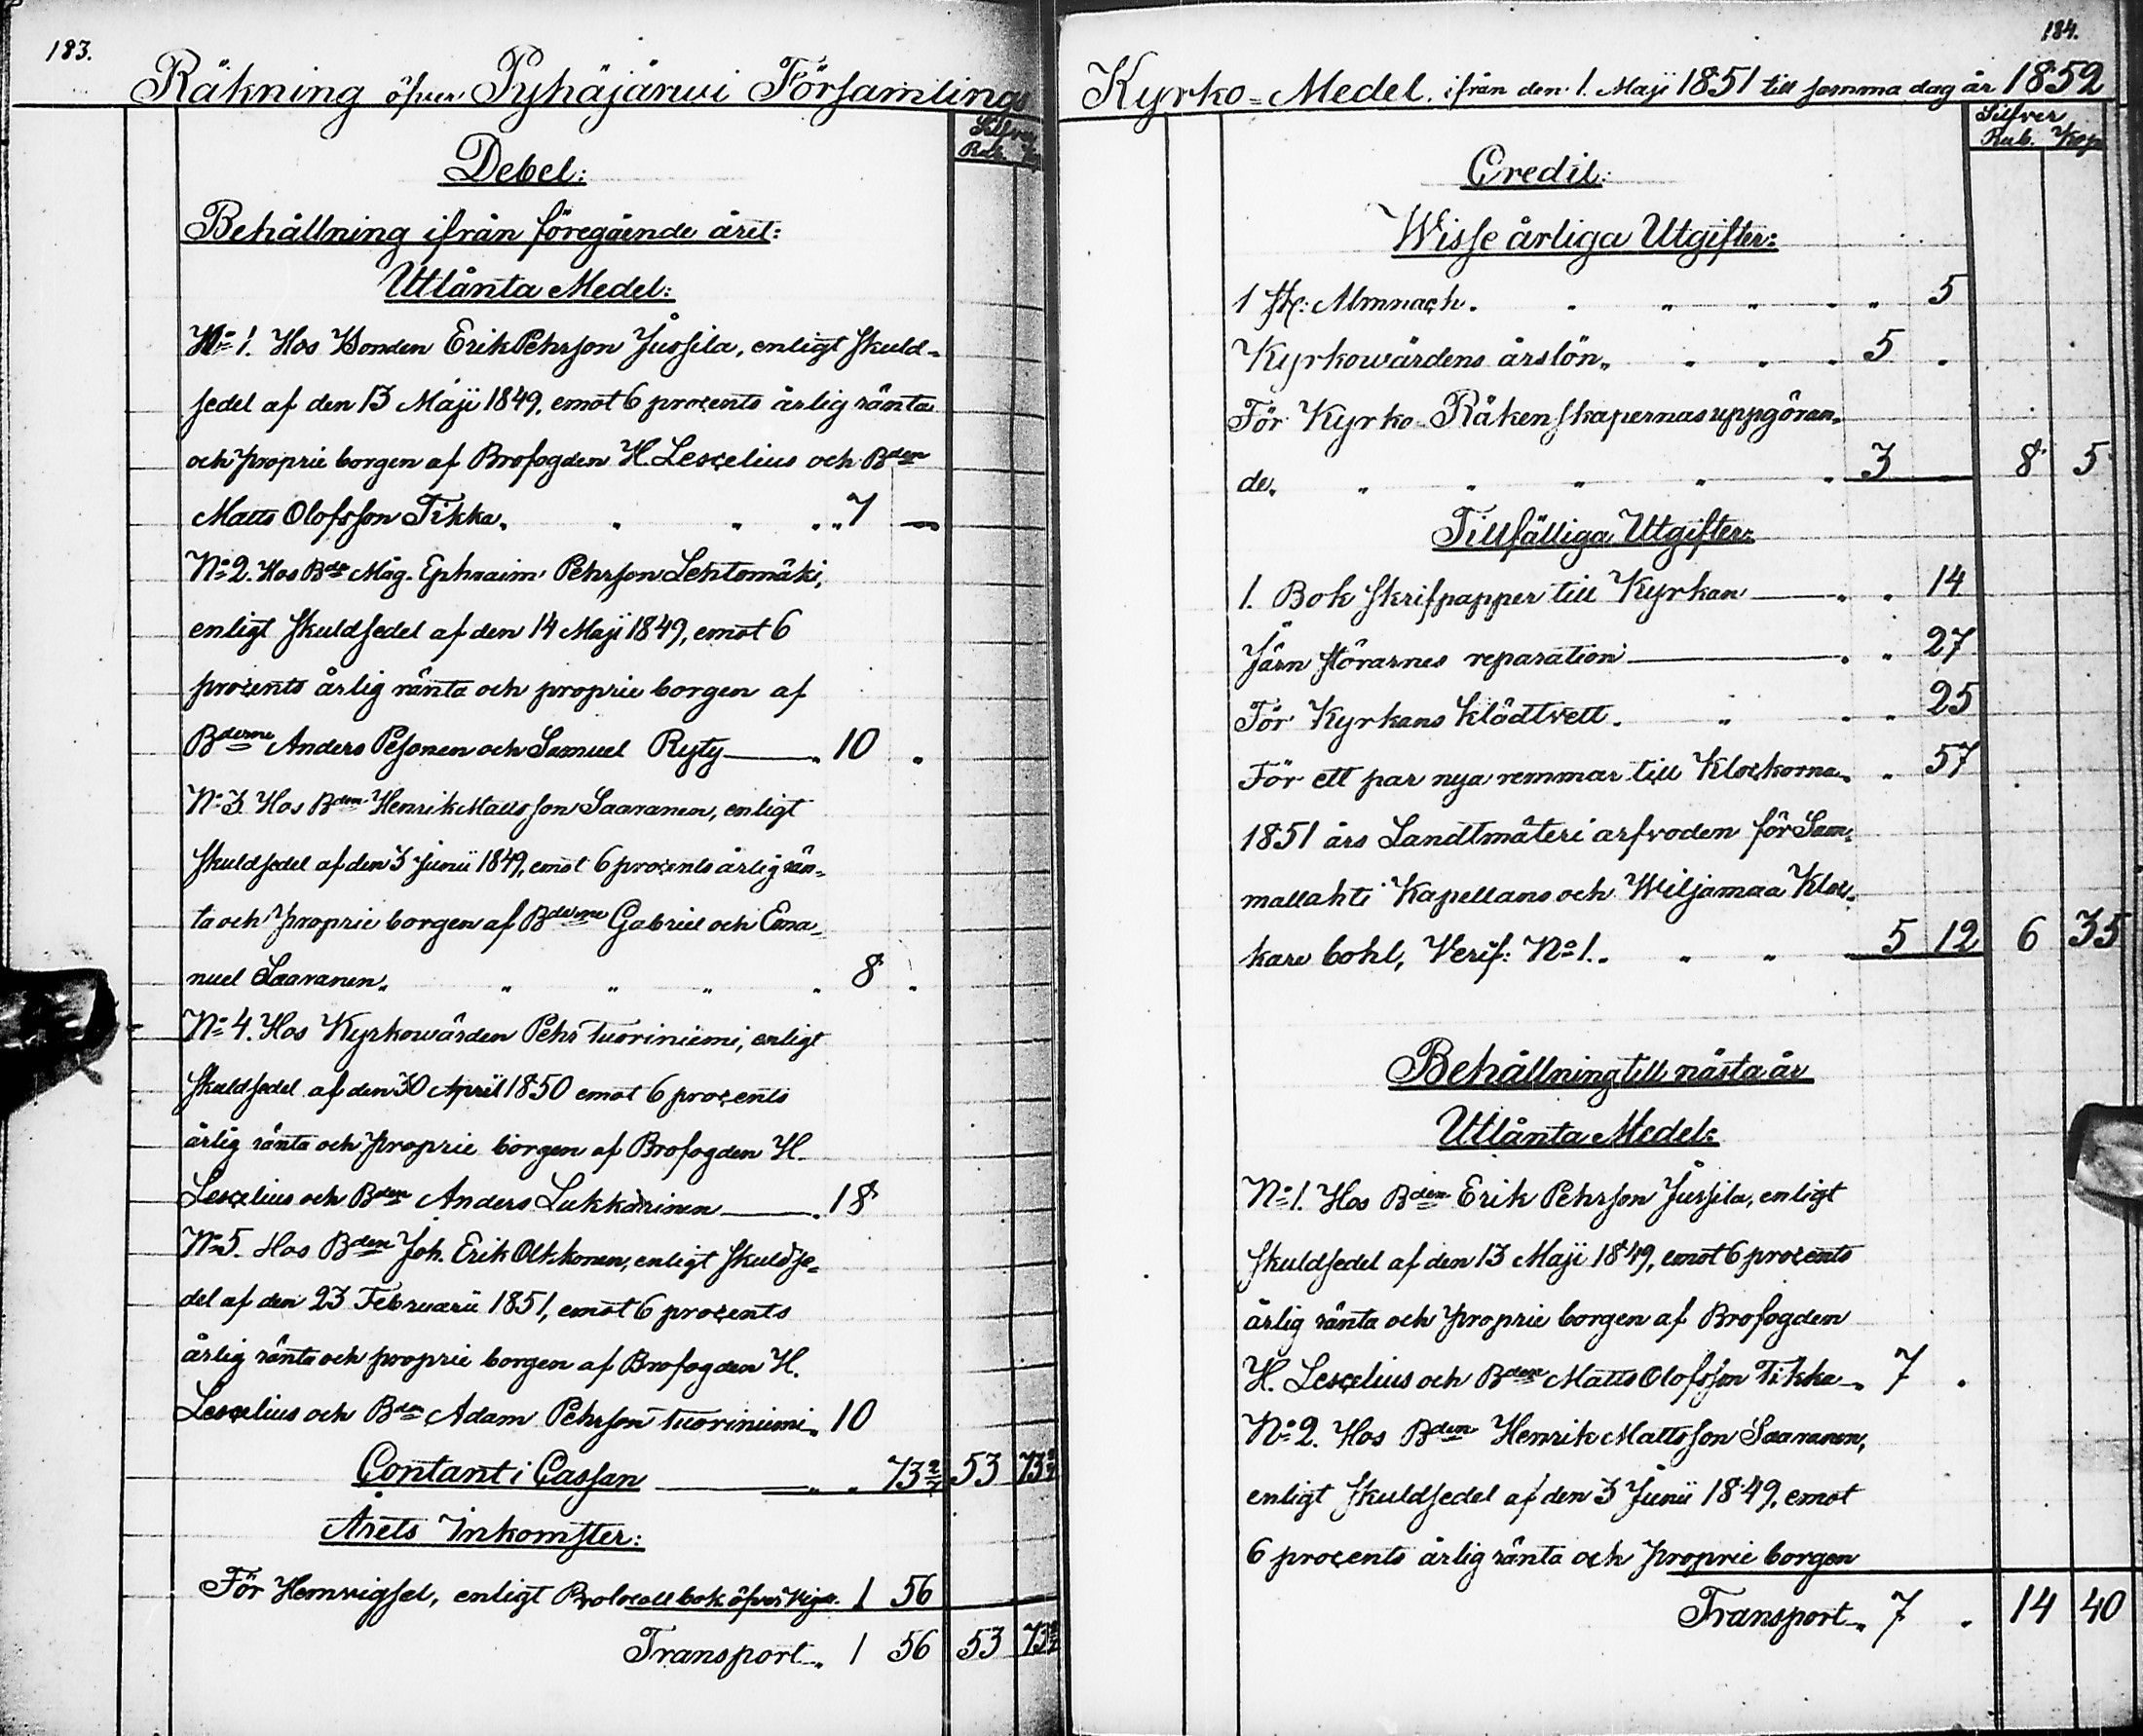 183.
Räkning öfver Pyhäjärwi Församlings
Silfver
Rub. Kop
Debet:
Behållning ifrån föregående året:
Utlånta Medel:
No 1. Hos Bonden Erik Pehrson Jussila, enligt Skuld-
sedel af den 13 Maji 1849, emot 6 procents årlig ränta
och proprie borgen af Brofogden H. Lescelius och Bden
Matts Olofsson Tikka. " " " " 7 —
No 2. Hos Bde Måg. Ephraim Pehrson Lehtomäki,
enligt Skuldsedel af den 14 Maji 1849, emot 6
procents årlig ränta och proprie borgen af
Bderne Anders Pesonen och Samuel Ryty — 10 "
No 3. Hos Bden Henrik Mattsson Saaranen, enligt
Skuldsedel af den 3 Junii 1849, emot 6 procents årlig rän-
ta och proprie borgen af Bderne Gabriel och Ema-
nuel Saaranen. " " " " 8 "
No 4. Hos Kyrkowärden Pehr Tuoriniemi, enligt
Skuldsedel af den 30 April 1850 emot 6 procents
årlig ränta och proprie borgen af Brofogden H.
Lescelius och Bden Anders Lukkarinen — 18
No 5. Hos Bden Joh. Erik Olkkonen, enligt Skuldse-
del af den 23 Februarii 1851, emot 6 procents
årlig ränta och proprie borgen af Brofogden H.
Lescelius och Bden Adam Pehrson Tuoriniemi. 10
Contant i Cassan — " " 73 2/7 53 73 2/7
Årets Inkomster:
För Hemvigsel, enligt Protocoll bok öfver Vigs. 1 56
Transport. 1 56 53 73 2/7
184.
Kyrko-Medel. ifrån den 1. Maji 1851 till samma dag år 1852
Silfver
Rub. Kop
Credit:
Wisse årliga Utgifter:
1 st: Almnach. " " " " " 5
Kyrkowärdens årslön. " " " 5 "
För Kyrko-Räkenskapernas uppgöran-
de. " " " " " 3 — 8 5
Tillfälliga Utgifter:
1. Bok Skrifpapper till Kyrkan — " " 14
Järn störarnes reparation — " " 27
För Kyrkans Klädtvett. " " " 25
För ett par nya remmar till Klockorna. " 57
1851 års Landtmäteri arfvoden för Sam-
mallahti Kapellans och Wiljamaa Kloc-
kare bohl, Verif: No 1. " " 5 12 6 35
Behållning till nästa år
Utlånta Medel:
No 1. Hos Bden Erik Pehrson Jussila, enligt
Skuldsedel af den 13 Maji 1849, emot 6 procents
årlig ränta och proprie borgen af Brofogden
H. Lescelius och Bden Matts Olofsson Tikka. 7 "
No 2. Hos Bden Henrik Mattsson Saaranen,
enligt Skuldsedel af den 3 Junii 1849, emot
6 procents årlig ränta och proprie borgen
Transport. 7 " 14 40